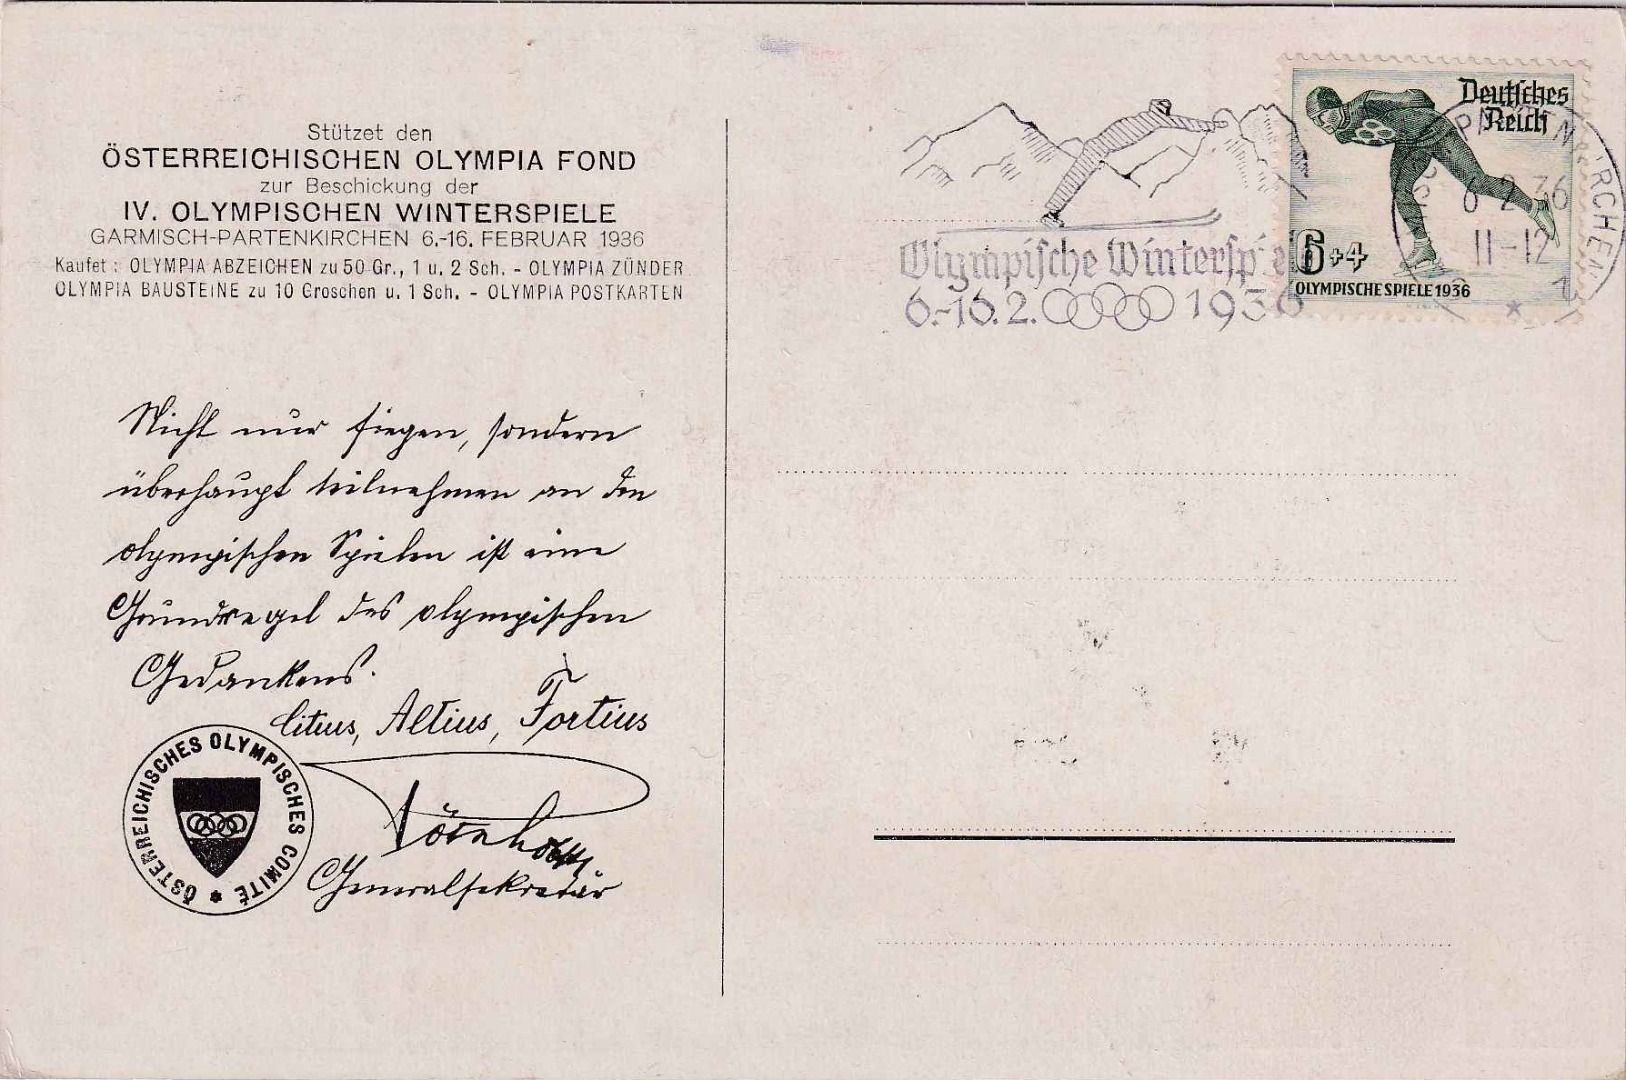 Stützet den
ÖSTERREICHISCHEN OLYMPIA FOND
zur Beschickung der
IV. OLYMPISCHEN WINTERSPIELE
GARMISCH-PARTENKIRCHEN 6.-16. FEBRUAR 1936
Kaufet : OLYMPIA ABZEICHEN zu 50 Gr., 1 u. 2 Sch. - OLYMPIA ZÜNDER
OLYMPIA BAUSTEINE zu 10 Groschen u. 1 Sch. - OLYMPIA POSTKARTEN
Nicht nur siegen, sondern
überhaupt teilnehmen an den
olympischen Spielen ist eine
Grundregel des olympischen
Gedankens.
Citius, Altius, Fortius
Generalsekretär
ÖSTERREICHISCHES OLYMPISCHES COMITÉ
Olympische Winterspie
6.-16.2. 1936
Deutsches
Reich
6+4
OLYMPISCHE SPIELE 1936
6 2.36
11-12
1